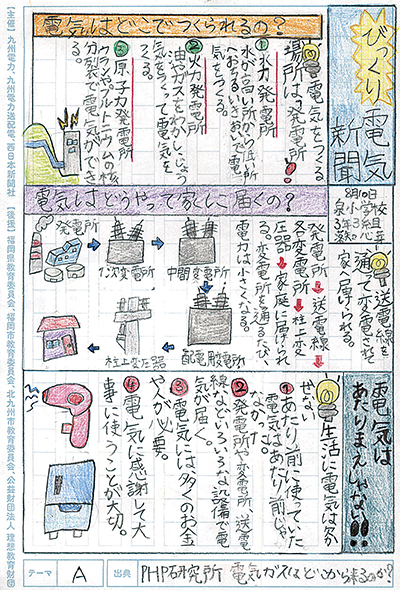 びっくり
電気
新聞
8月10日
泉小学校
3年3組
電気はどこでつくられるの？
電気をつくる
場所は、発電所
①水力発電所
水が高い所から低い所
へおちるいきおいで電
気をつくる。
②火力発電所
油やガスをわかし、じょう
気をつくって電気を
つくる。
③原子力発電所
ウランやプルトニウムの核
分裂で電気ができ
る。
電気はどうやって家に届くの？
送電線を
通って変電されて
家へ届けられる。
発電所→送電線→
各変電所→柱上変
圧器→家庭に届けられ
る。変電所を通るたび、
電力は小さくなる。
発電所
1次変電所
中間変電所
配電用変電所
柱上変圧器
電気は
あたりまえじゃない!!
生活に電気は欠か
せない
①あたり前に使ってた
電気はあたり前じゃ
なかった。
②発電所や変電所、送電
線などいろいろな設備で電
気が届く。
③電気には多くのお金
や人が必要。
④電気に感謝して大
事に使うことが大切。
テーマ A 出典 PHP研究所 電気ガスはどこから来るのか?
【主催】九州電力、九州電力送配電、西日本新聞社 【後援】福岡県教育委員会、福岡市教育委員会、北九州市教育委員会、公益財団法人 理想教育財団